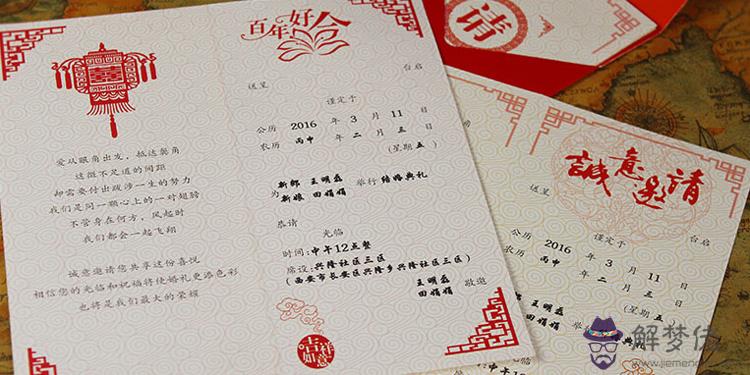 百年好合
送呈
台启
谨定于
公历 2016 年 3 月 11 日
农历 丙申 年 二 月 三 日
(星期五)
爱从眼角出发，抵达鬓角
这微不足道的间距
却需要付出跋涉一生的努力
我们是同一颗心上的一对翅膀
不管身在何方，风起时
我们都会一起飞翔
诚意邀请您共享这份喜悦
相信您的光临和祝福将使婚礼更添色彩
也将是我们最大的荣耀
为 新郎 王明磊 举行 结婚典礼
新娘 田娟娟
恭请
光临
时间:中午12点整
席设:兴隆社区三区
(西安市长安区兴隆乡兴隆社区三区)
王明磊
田娟娟 敬邀
吉祥
如意
请
誠意邀請
送呈
台启
谨定于
公历 2016 年 3 月 11 日
农历 丙申 年 二 月 三 日
(星期五)
王明磊
田娟娟 举行
典礼
解梦佬
jiemenglao.com